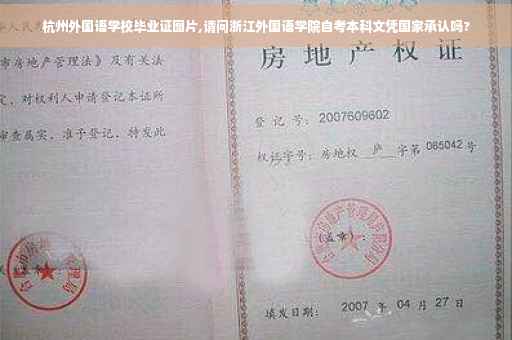 杭州外国语学校毕业证图片,请问浙江外国语学院自考本科文凭国家承认吗?
市房地产管理法》及有关法
定,对权利人申请登记本证所
审查属实,准予登记,特发此
房地产权
登记号: 2007609602
权证字号: 房地权 庐 字第 085042 号
(盖章):
填发日期: 2007 年 04 月 27 日